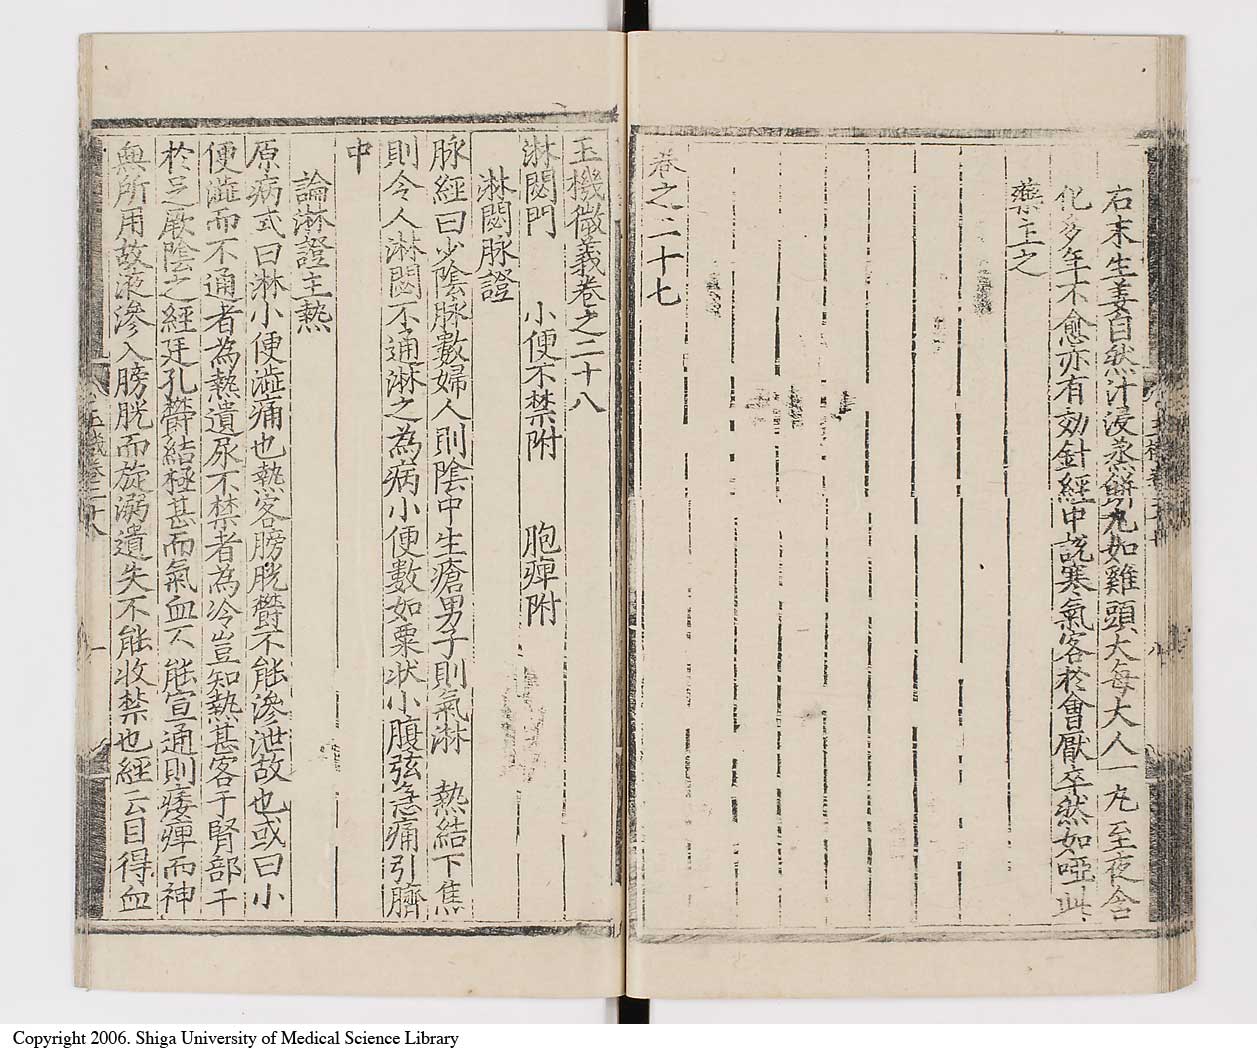 右末生姜自然汁浸蒸餠丸如雞頭大每大人一丸至夜含
化多年不愈亦有効針經中說寒氣客於會厭卒然如啞此
藥主之
卷之二十七
玉機微義卷之二十八
淋閟門 小便不禁附 胞痺附
淋閟脉證
脉經曰少陰脉數婦人則陰中生瘡男子則氣淋 熱結下焦
則令人淋閟不通淋之為病小便數如粟狀小腹弦急痛引臍
中
論淋證主熱
原病式曰淋小便澁痛也熱客膀胱欝不能滲泄故也或曰小
便澁而不通者為熱遺尿不禁者為冷豈知熱甚客于腎部干
於足厥陰之經廷孔欝結極甚而氣血不能宣通則痿痺而神
無所用故液滲入膀胱而旋溺遺失不能收禁也經云目得血
玉機卷二十八
一
Copyright 2006. Shiga University of Medical Science Library